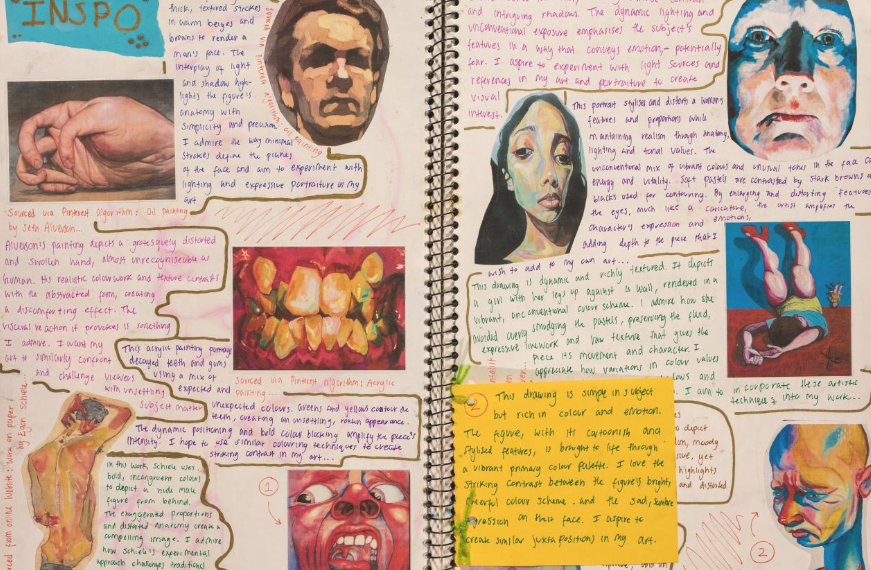 INSPO
thick, textured strokes
in warm beiges and
browns to render a
man's face. The
interplay of light
and shadow high-
lights the figure's
anatomy with
simplicity and precision.
I admire the way minimal
strokes define the planes
of the face and aim to experiment with
lighting and expressive portraiture in my
art
Sourced via Pinterest Algorithm: Oil painting
by Seth Alverson...
Alverson's painting depicts a grotesquely distorted
and swollen hand, almost unrecogniseable as
human. Its realistic colourwork and texture contrasts
with the abstracted form, creating
a discomforting effect. The
visceral reaction it provokes is something
I admire. I want my
art to similarly confront
and challenge viewers
with unsettling
subject matter
This acrylic painting portrays
decayed teeth and gums
using a mix of
expected and
unexpected colours. Greens and yellows contour the
teeth, creating an unsettling, rotten appearance.
The dynamic positioning and bold colour blocking amplify the piece's
intensity. I hope to use similar colouring techniques to create
striking contrast in my art...
Sourced via Pinterest Algorithm: Acrylic
painting...
work on paper
by Egon Schiele
In this work, Schiele uses
bold, incongruent colours
to depict a nude male
figure from behind.
The exaggerated proportions
and distorted anatomy create a
compelling image. I admire
how Schiele's experimental
approach challenges traditional
1
and intriguing shadows. The dynamic lighting and
unconventional exposure emphasises the subject's
features in a way that conveys emotion - potentially
fear. I aspire to experiment with light sources and
references in my art and portraiture to create
visual
interest.
This portrait stylises and distorts a woman's
features and proportions while
maintaining realism through anatomy,
lighting and tonal values. The
unconventional mix of vibrant colours and unusual tones in the face
energy and vitality. Soft pastels are contrasted by stark browns
blacks used for contouring. By enlarging and distorting features
the eyes, much like a caricature, the artist amplifies the
character's expression and emotions,
adding depth to the piece that I
wish to add to my own art...
This drawing is dynamic and richly textured. It depicts
a girl with her legs up against a wall, rendered in a
vibrant, unconventional colour scheme. I admire how she
avoided overly smudging the pastels, preserving the fluid,
expressive linework and raw texture that gives the
piece its movement and character. I
appreciate how variations in colour values
and I aim to incorporate these artistic
techniques into my work...
2
This drawing is simple in subject
but rich in colour and emotion.
The figure, with its cartoonish and
stylised features, is brought to life through
a vibrant primary colour palette. I love the
striking contrast between the figure's bright,
cheerful colour scheme and the sad, sombre
expression on their face. I aspire to
create similar juxtapositions in my art.
to depict
moody
yet
highlights
and distorted
2